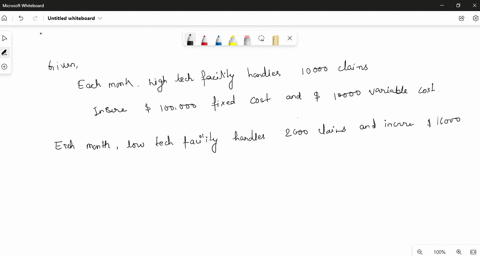 Microsoft Whiteboard
Untitled whiteboard
Given,
Each month. high tech facility handles 10000 claims
Insure $ 100,000 fixed cost and $ 10000 variable cost
Each month, low tech facility handles 2000 claims and incure $ 16000
100%